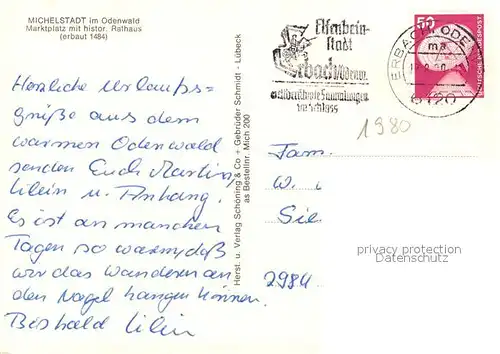 MICHELSTADT im Odenwald
Marktplatz mit histor. Rathaus
(erbaut 1484)
Herzliche Urlaubs-
grüße aus dem
warmen Odenwald
senden Euch Martin,
Lilein u. Anhang.
Es ist an manchen
Tagen so warm, daß
wir das Wandern an
den Nagel hängen können.
Bis bald Lilein
Herst. u. Verlag Schöning & Co + Gebrüder Schmidt - Lübeck
as Bestellnr. Mich 200
Elfenbein-
stadt
Erbach/Odenw.
weltberühmte Sammlungen
im Schloss
ERBACH, ODENW
ma
6120
50
DEUTSCHE BUNDESPOST
1980
Fam.
W. i
Sie
2984
privacy protection
Datenschutz